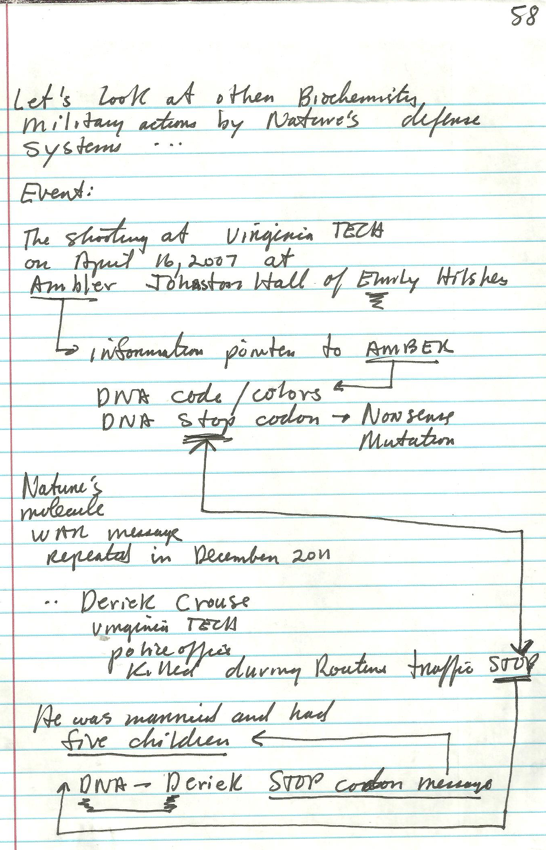 58
Let's look at other Biochemistry
military actions by Nature's defense
systems ...
Event:
The shooting at Virginia TECH
on April 16, 2007 at
Ambler Johnston Hall of Emily Hilsher
information pointer to AMBER
DNA code/colors
DNA Stop codon → Nonsense
Mutation
Nature's
molecule
WAR message
repeated in December 2011
.. Derick Crouse
Virginia TECH
police office
Killed during Routine traffic STOP
He was married and had
five children
DNA – Derick STOP codon message